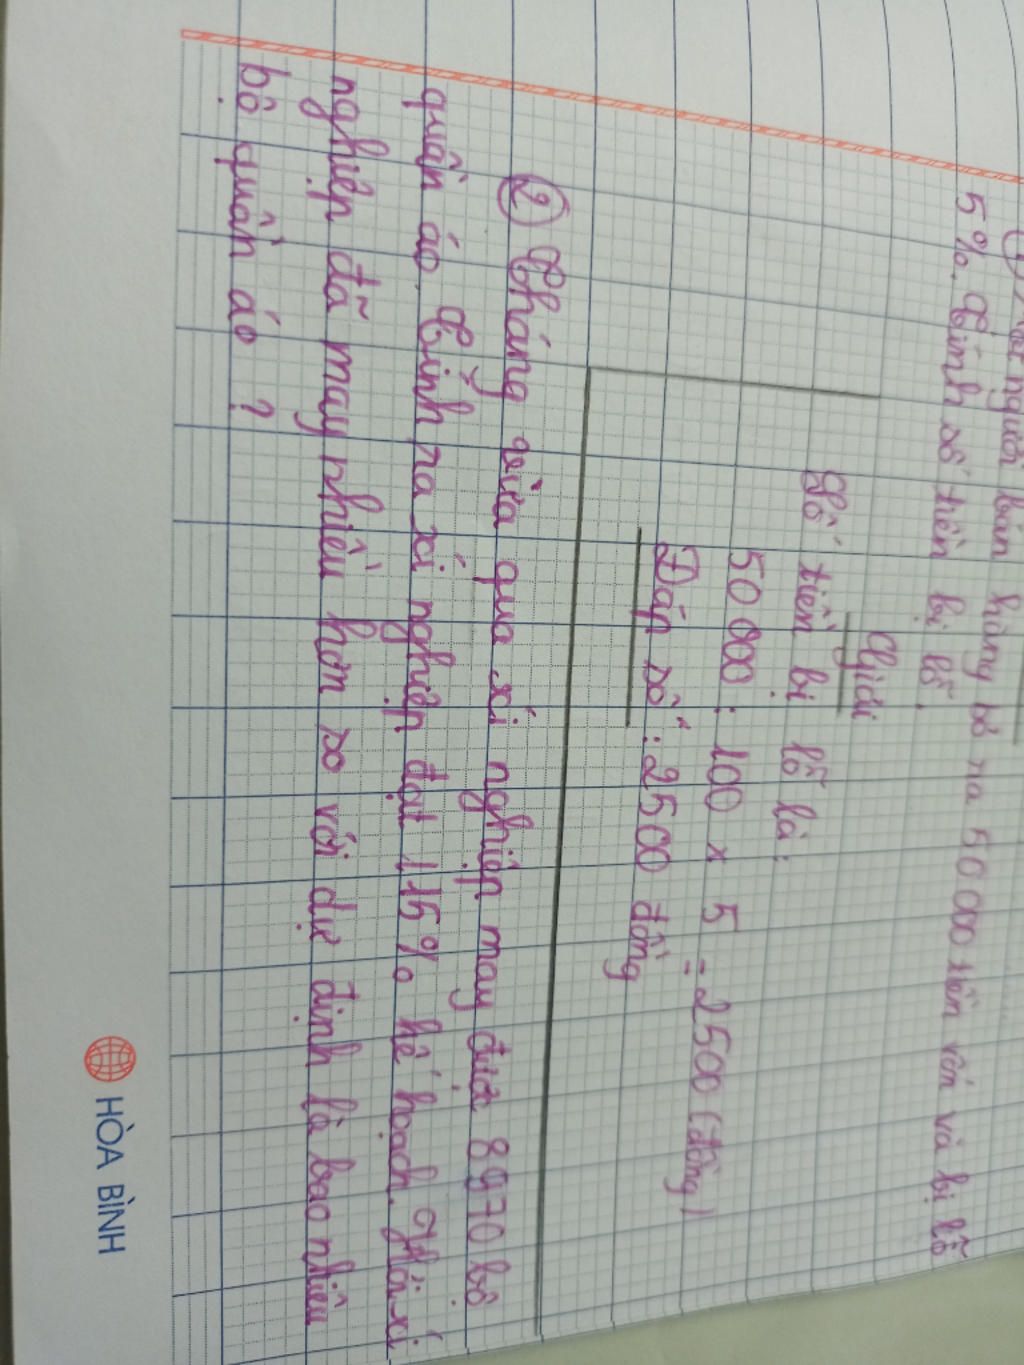 người bán hàng bỏ ra 50 000 tiền vốn và bị lỗ
5%. Tính số tiền bị lỗ.
Giải
Số tiền bị lỗ là:
50 000 : 100 x 5 = 2500 (đồng)
Đáp số: 2500 đồng
② Tháng vừa qua xí nghiệp may được 8970 bộ
quần áo. Tính ra xí nghiệp đạt 115% kế hoạch. Hỏi xí
nghiệp đã may nhiều hơn so với dự định là bao nhiêu
bộ quần áo ?
HÒA BÌNH